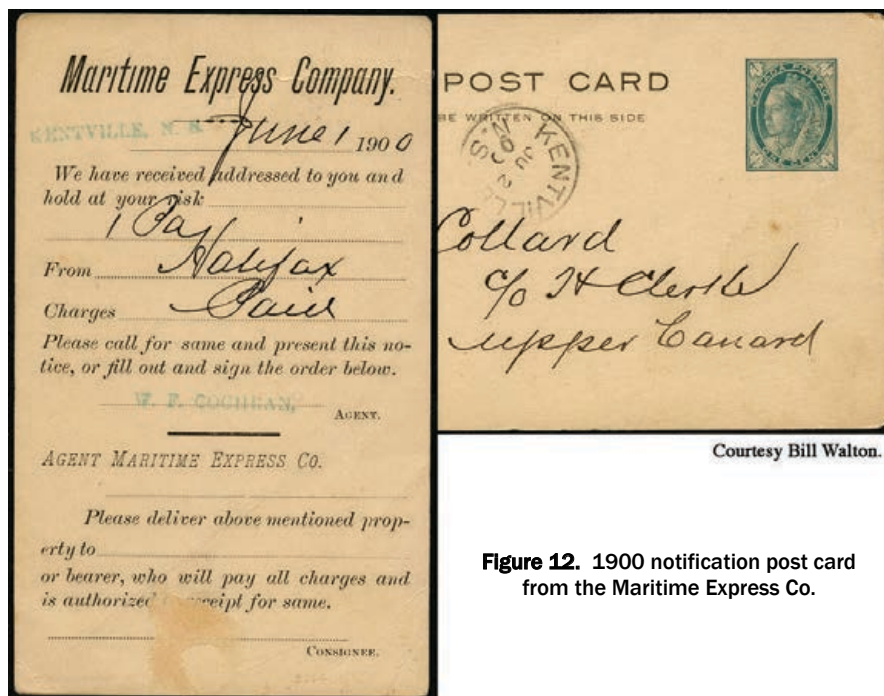 Maritime Express Company.
KENTVILLE, N. S.
June 1 1900
We have received addressed to you and
hold at your risk
1
From Halifax
Charges Paid
Please call for same and present this no-
tice, or fill out and sign the order below.
W. F. COCHRAN,
AGENT.
AGENT MARITIME EXPRESS CO.
Please deliver above mentioned prop-
erty to
or bearer, who will pay all charges and
is authorized receipt for same.
CONSIGNEE.
POST CARD
BE WRITTEN ON THIS SIDE
KENTVILLE N.S.
JU 2
Collard
c/o H
Upper Canard
Courtesy Bill Walton.
Figure 12. 1900 notification post card
from the Maritime Express Co.